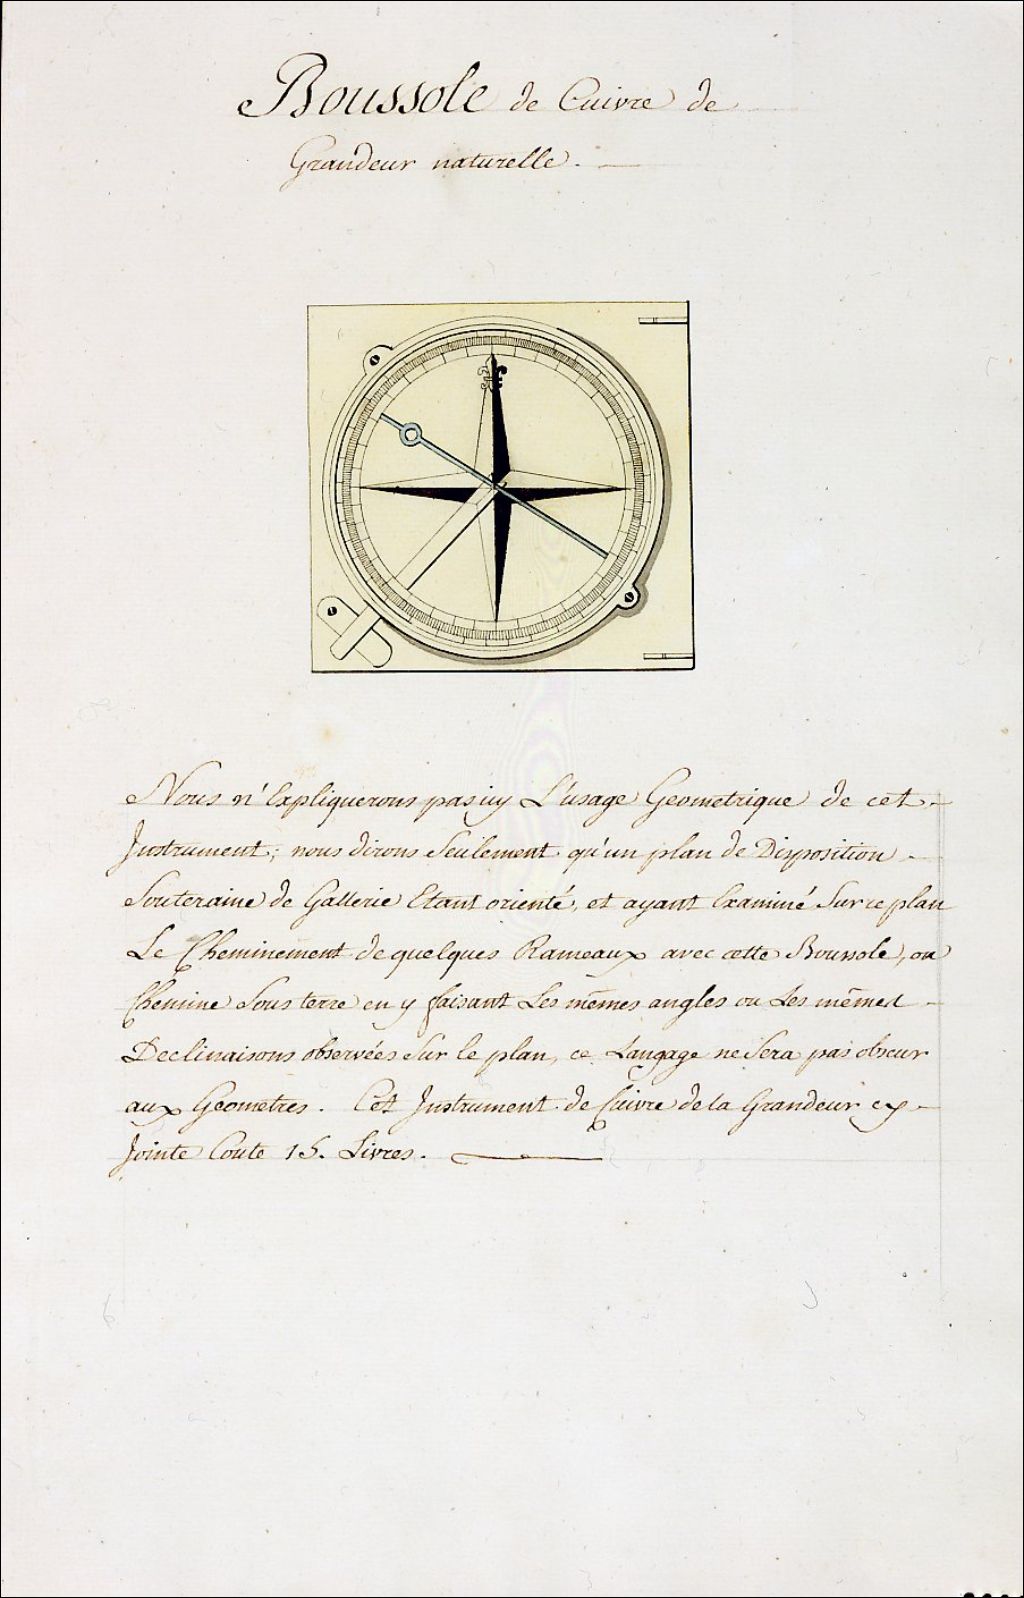 Boussole de Cuivre de
Grandeur naturelle.
Nous n'Expliquerons pas icy L'usage Geometrique de cet
Instrument; nous dirons Seulement qu'un plan de Disposition
Souteraine de Gallerie Etant orienté, et ayant Examiné Sur ce plan
Le Cheminement de quelques Rameaux avec cette Boussole, on
Chemine Sous terre en y faisant Les mêmes angles ou Les mêmes
Declinaisons observées Sur le plan, ce Langage ne Sera pas obscur
aux Geometres. Cet Instrument de Cuivre de la Grandeur cy
Jointe Coute 15. Livres.